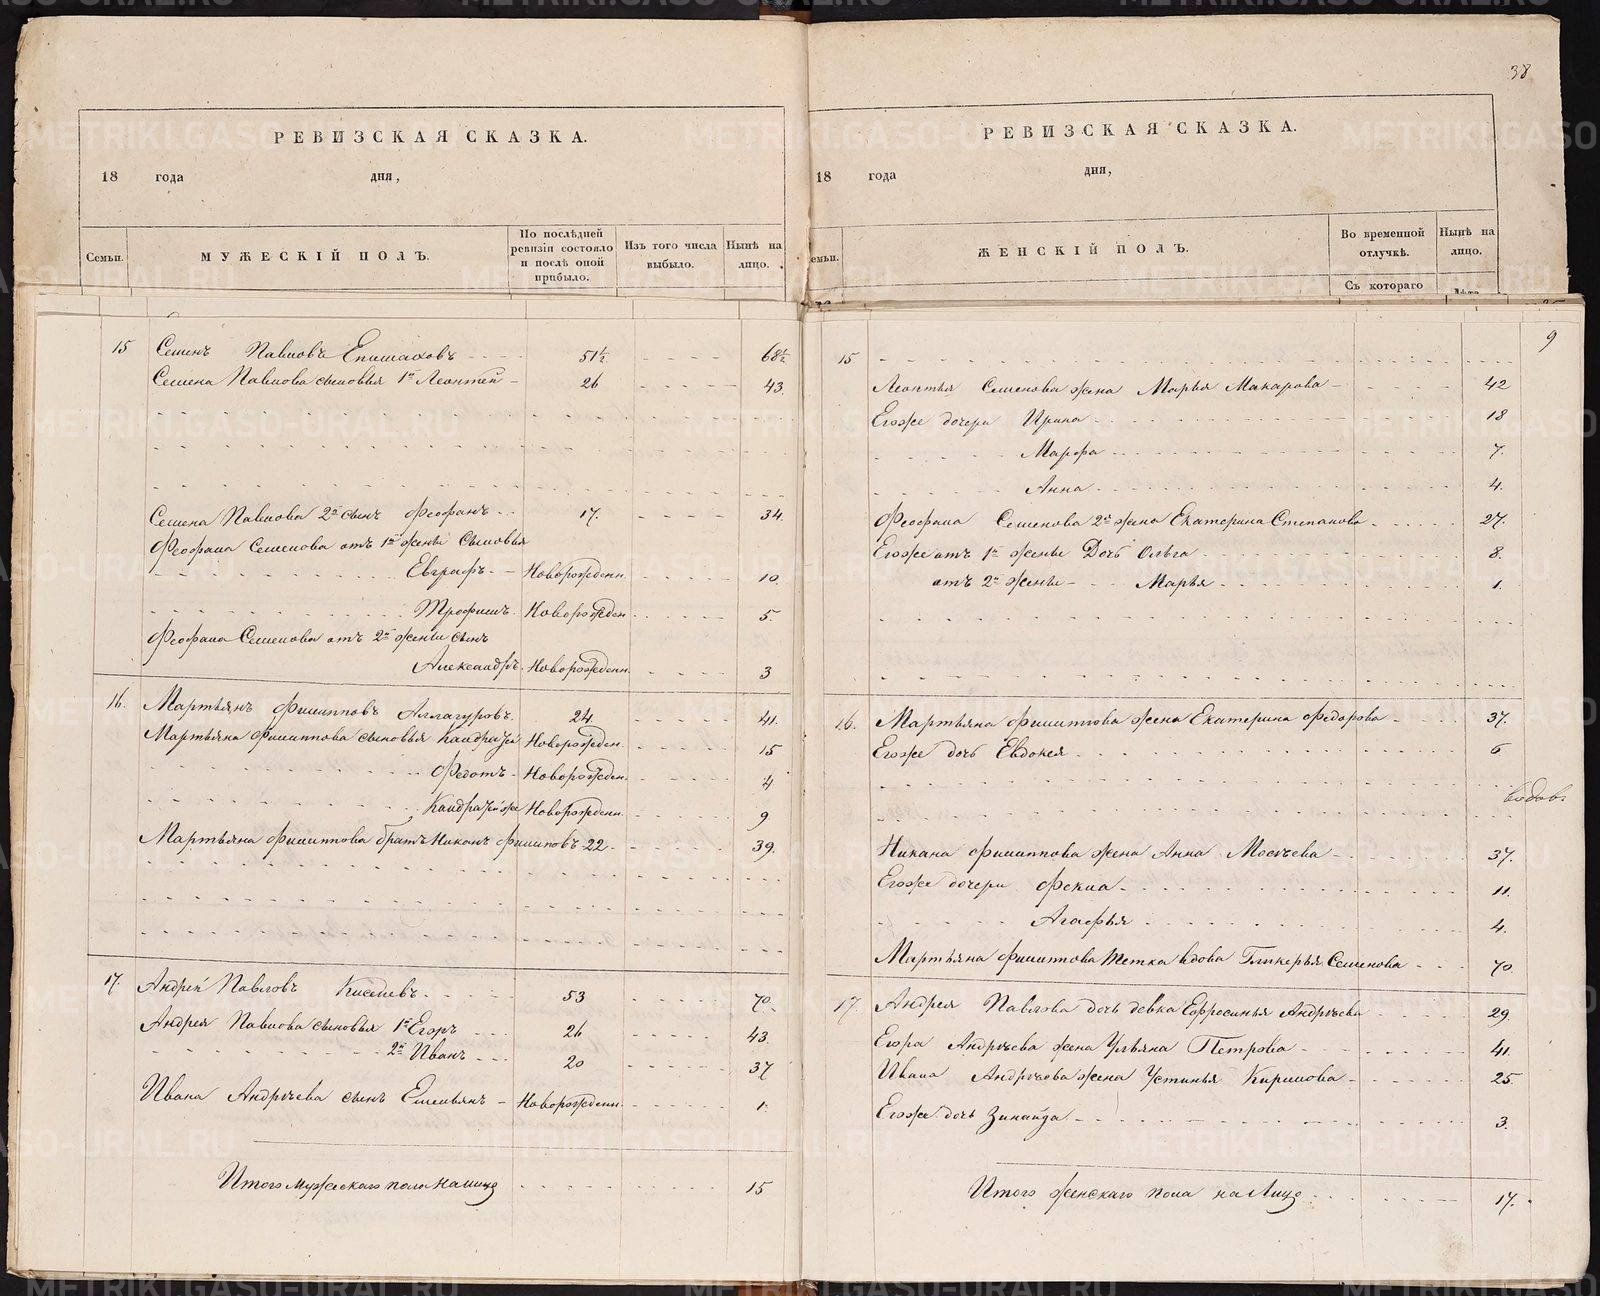 РЕВИЗСКАЯ СКАЗКА.
18 года дня,
Семьи. МУЖЕСКІЙ ПОЛЪ. По послѣдней ревизіи состояло и послѣ оной прибыло. Изъ того числа выбыло. Нынѣ на лицо.
15 Семенъ Павловъ Епишаховъ 51½ 68½
Семена Павлова сыновья 1й Леонтей 26 43.
Семена Павлова 2й сынъ Феофанъ 17. 34.
Феофана Семенова отъ 1й жены сыновья
Евграфъ Новорожденн. 10.
Трофимъ Новорожден. 5.
Феофана Семенова отъ 2й жены сынъ
Александръ Новорожденн. 3
16. Мартьянъ Филипповъ 24 41.
Мартьяна Филиппова сыновья Кандратей Новорожден. 15
Федотъ Новорожден. 4
Кандратей же Новорожденн. 9
Мартьяна Филиппова братъ Никанъ Филиповъ 22. 39.
17. Андрей Павловъ Киселевъ 53 70.
Андрея Павлова сыновья 1й Егоръ 26 43.
2й Иванъ 20 37
Ивана Андреева сынъ Емельянъ Новорожденн. 1.
Итого мужескаго пола на лицо 15
38
РЕВИЗСКАЯ СКАЗКА.
18 года дня,
емьи. ЖЕНСКІЙ ПОЛЪ. Во временной отлучкѣ. Нынѣ на лицо.
Съ котораго Лѣта
9
15
Леонтья Семенова жена Марья Макарова 42
Егоже дочери Ирина 18
Марфа 7.
Анна 4.
Феофана Семенова 2я жена Екатерина Степанова 27.
Егоже отъ 1й жены дочь Ольга 8.
отъ 2й жены Марья 1.
16. Мартьяна Филиппова жена Екатерина Федорова 37.
Егоже дочь Евдокея 6
вдова
Никана Филиппова жена Анна Мосѣева 37.
Егоже дочери Фекла 11.
Агафья 4.
Мартьяна Филиппова тетка вдова Гликерья Семенова 70.
17. Андрея Павлова дочь девка Ефросинья Андрѣева 29.
Егора Андрѣева жена Ульяна Петрова 41.
Ивана Андрѣева жена Устинья Кирилова 25
Егоже дочь Зинаида 3.
Итого женскаго пола на лицо 17.
METRIKI.GASO-URAL.RU